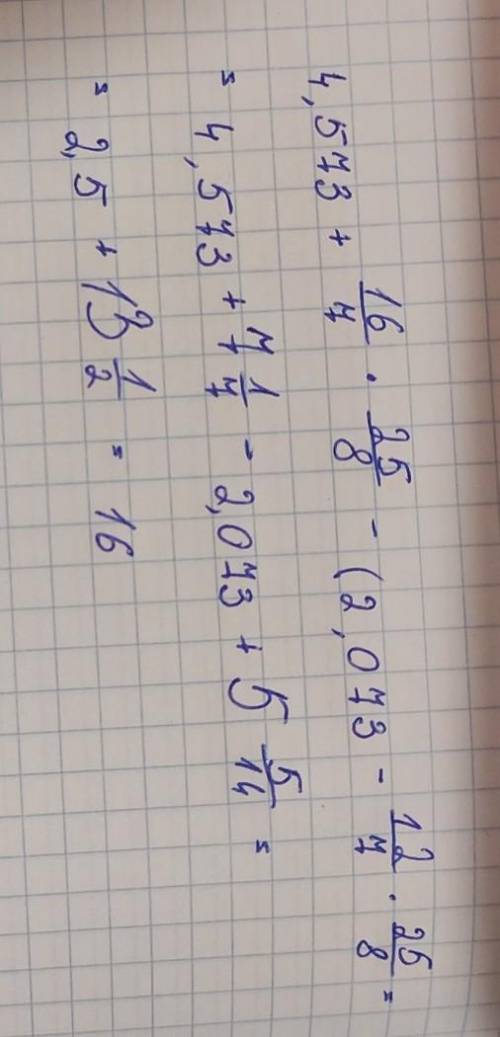 4,573 + 16/7 · 25/8 - (2,073 - 12/7 · 25/8 =
= 4,573 + 7 1/7 - 2,073 + 5 5/14 =
= 2,5 + 13 1/2 = 16